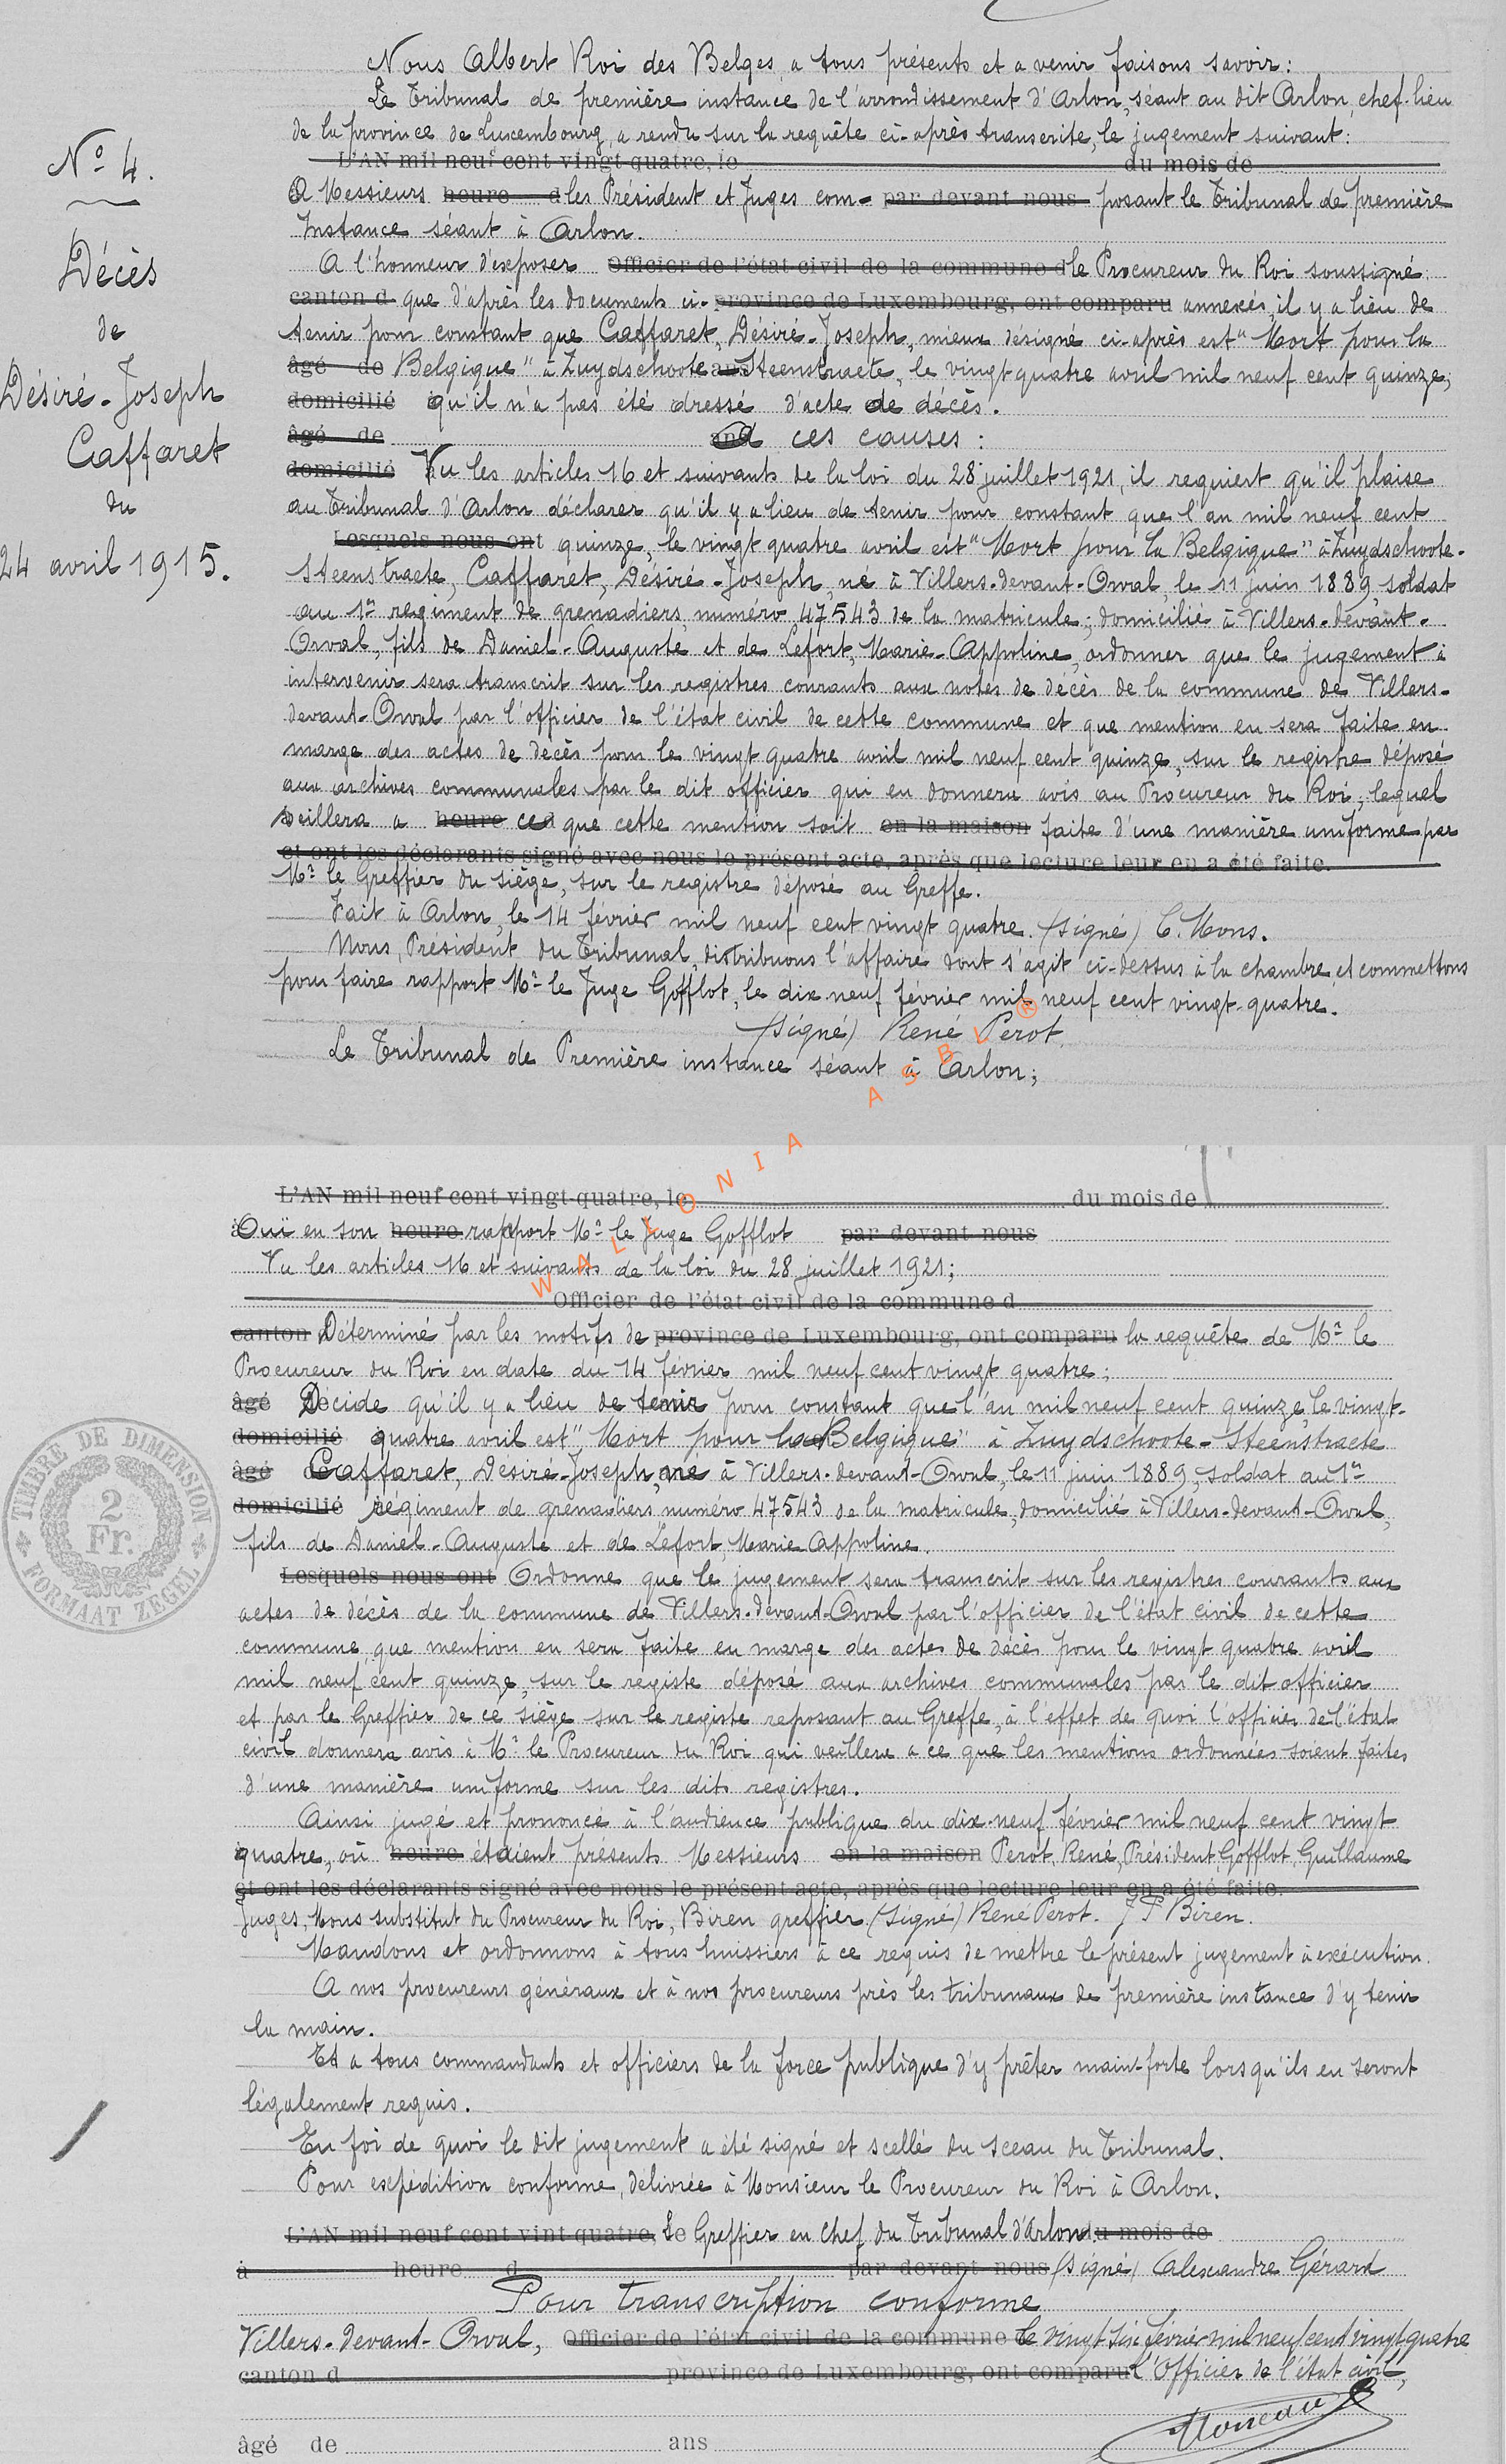 Nous Albert Roi des Belges, a tous présents et a venir faisons savoir:
Le Tribunal de première instance de l'arrondissement d'Arlon, séant au dit Arlon, chef-lieu
de la province de Luxembourg, a rendu sur la requête ci-après transcrite, le jugement suivant:
L'AN mil neuf cent vingt-quatre, le du mois de
A Messieurs heure d les Président et Juges com- par devant nous posant le Tribunal de première
Instance séant à Arlon.
A l'honneur d'exposer Officier de l'état civil de la commune d le Procureur du Roi soussigné
canton d que d'après les documents ci- province de Luxembourg, ont comparu annexés, il y a lieu de
tenir pour constant que Caffaret, Désiré-Joseph, mieux désigné ci-après est "Mort pour la
âgé de Belgique" à Zuydschoote ans Steenstraete, le vingt quatre avril mil neuf cent quinze;
domicilié qu'il n'a pas été dressé d'acte de décès.
âgé de ans A ces causes:
domicilié Vu les articles 16 et suivants de la loi du 28 juillet 1921, il requiert qu'il plaise
au Tribunal d'Arlon déclarer qu'il y a lieu de tenir pour constant que l'an mil neuf cent
Lesquels nous ont quinze, le vingt quatre avril est "Mort pour la Belgique" à Zuydschoote-
Steenstraete, Caffaret, Désiré-Joseph, né à Villers-devant-Orval, le 11 juin 1889, soldat
au 1er regiment de grenadiers, numéro 47543 de la matricule; domicilié à Villers-devant-
Orval, fils de Daniel-Auguste et de Lefort, Marie-Appoline, ordonner que le jugement à
intervenir sera transcrit sur les registres courants aux notes de décès de la commune de Villers-
devant-Orval par l'officier de l'état civil de cette commune et que mention en sera faite en
marge des actes de décès pour le vingt quatre avril mil neuf cent quinze, sur le registre déposé
aux archives communales par le dit officier qui en donnera avis au Procureur du Roi, lequel
veillera a heure ce d que cette mention soit en la maison faite d'une manière uniforme par
et ont les déclarants signé avec nous le présent acte, après que lecture leur en a été faite.
Mr le Greffier du siège, sur le registre déposé au Greffe.
Fait à Arlon, le 14 février mil neuf cent vingt quatre. (signé) C. Mons.
Nous, Président du Tribunal, distribuons l'affaire dont s'agit ci-dessus à la chambre et commettons
pour faire rapport Mr le Juge Gofflot, le dix-neuf février mil neuf cent vingt-quatre.
(signé) René Perot.
Le Tribunal de Première instance séant à Arlon;
No 4.
Décès
de
Désiré-Joseph
Caffaret
du
24 avril 1915.
WALLONIA ASBL ®
L'AN mil neuf cent vingt-quatre, le du mois de
à Ouï en son heure rapport Mr le Juge Gofflot par devant nous
Vu les articles 16 et suivants de la loi du 28 juillet 1921;
Officier de l'état civil de la commune d
canton Déterminé par les motifs de province de Luxembourg, ont comparu la requête de Mr le
Procureur du Roi en date du 14 février mil neuf cent vingt quatre;
âgé Décide qu'il y a lieu de tenir pour constant que l'an mil neuf cent quinze, le vingt-
domicilié quatre avril est "Mort pour la Belgique" à Zuydschoote-Steenstraete
âgé de Caffaret, Desiré-Joseph, né à Villers-devant-Orval, le 11 juin 1889, soldat au 1er
domicilié régiment de grenadiers, numéro 47543 de la matricule, domicilié à Villers-devant-Orval,
fils de Daniel-Auguste et de Lefort, Marie Appoline.
Lesquels nous ont Ordonne que le jugement sera transcrit sur les registres courants aux
actes de décès de la commune de Villers-devant-Orval par l'officier de l'état civil de cette
commune, que mention en sera faite en marge des actes de décès pour le vingt quatre avril
mil neuf cent quinze, sur le registe déposé aux archives communales par le dit officier
et par le Greffier de ce siège sur le registe reposant au Greffe, à l'effet de quoi l'officier de l'état
civil donnera avis à Mr le Procureur du Roi qui veillera a ce que les mentions ordonnées soient faites
d'une manière uniforme sur les dits registres.
Ainsi jugé et prononcé à l'audience publique du dix-neuf février mil neuf cent vingt
quatre, où heure étaient présents Messieurs en la maison Perot, René, Président, Gofflot, Guillaume
et ont les déclarants signé avec nous le présent acte, après que lecture leur en a été faite.
Juges, Mons substitut du Procureur du Roi, Biren greffier. (Signé) René Perot. J P Biren.
Mandons et ordonnons à tous huissiers à ce requis de mettre le présent jugement à exécution.
A nos procureurs généraux et à nos procureurs près les tribunaux de première instance d'y tenir
la main.
Et a tous commandants et officiers de la force publique d'y prêter main-forte lorsqu'ils en seront
légalement requis.
En foi de quoi le dit jugement a été signé et scellé du sceau du Tribunal.
Pour expédition conforme, délivrée à Monsieur le Procureur du Roi à Arlon.
L'AN mil neuf cent vint quatre, le Greffier en Chef du Tribunal d'Arlon. du mois de
à heure d par devant nous (Signé) Alexandre Gérard
Pour transcription conforme
Villers-devant-Orval, Officier de l'état civil de la commune le vingt six février mil neuf cent vingt quatre
canton d province de Luxembourg, ont comparu L'Officier de l'état civil,
âgé de ans
TIMBRE DE DIMENSION
2
Fr.
FORMAAT ZEGEL